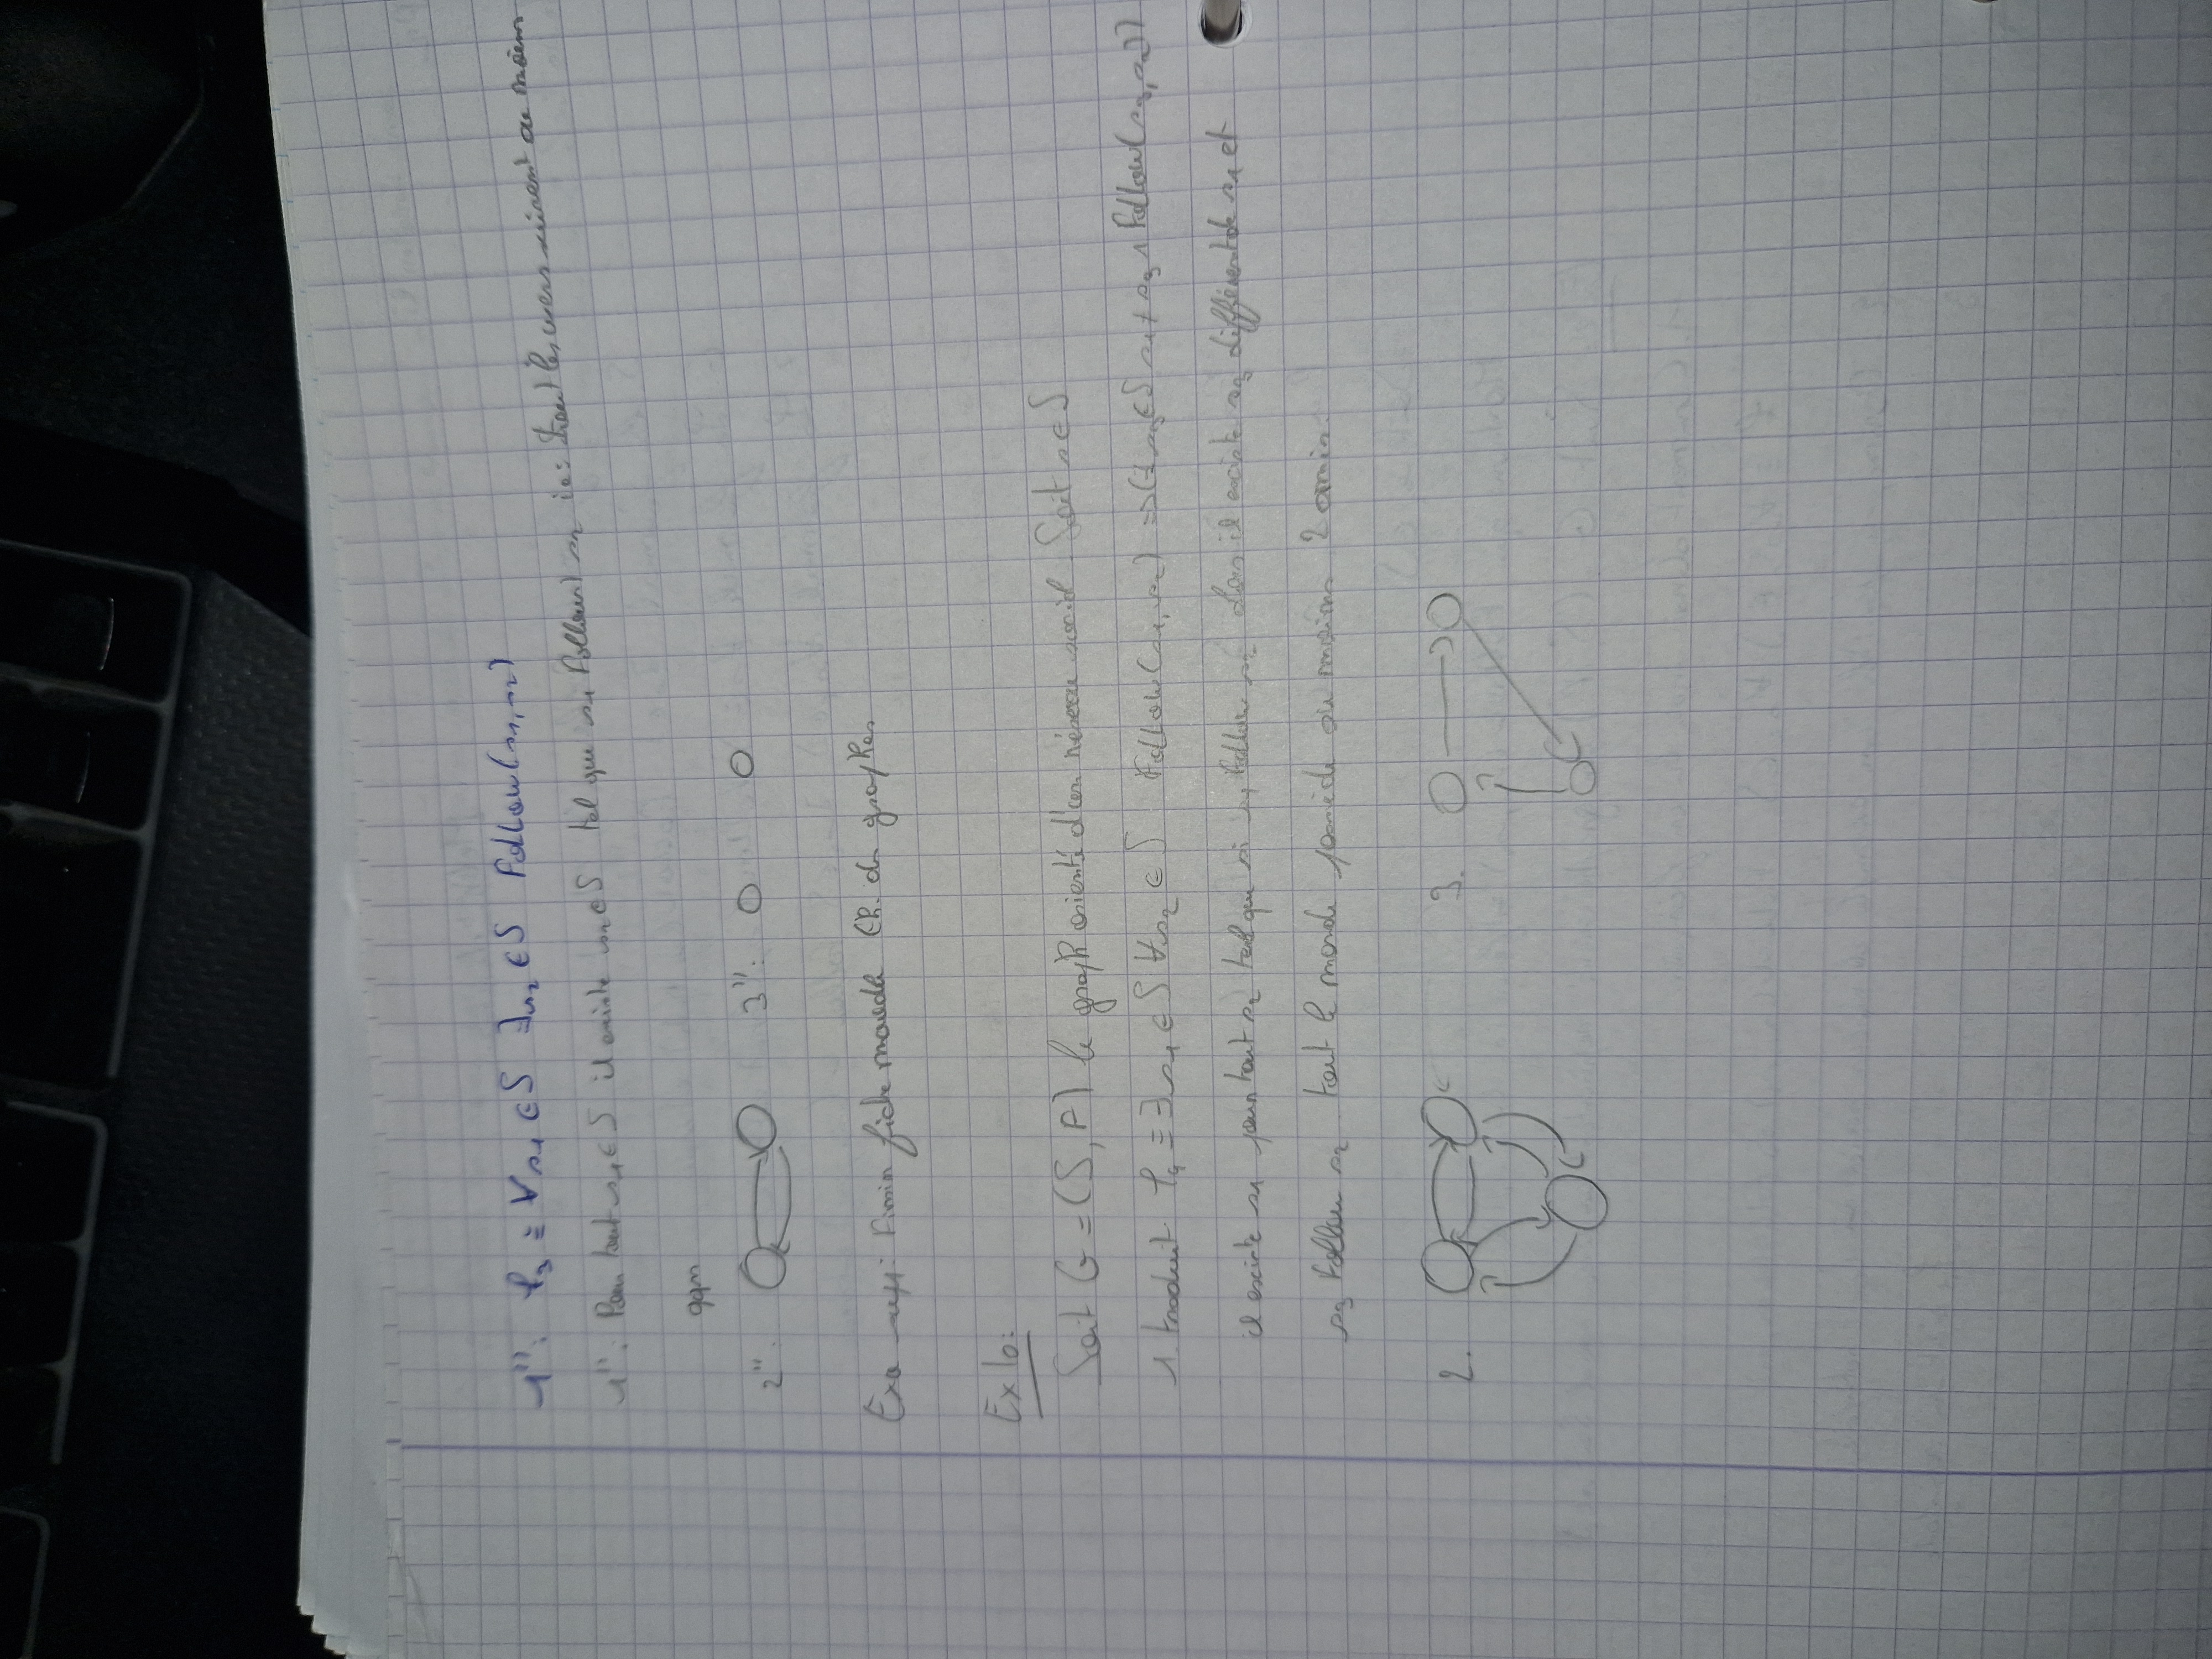 1'': φ₃ ≡ ∀s₁ ∈ S ∃s₂ ∈ S Follow(s₁, s₂)
1'': Pour tout s₁ ∈ S il existe s₂ ∈ S tel que s₁ Follow s₂ ie: tout les users suivent au moins
qqn
2'': 3'':
Exo supp: Finir fiche monde Ch. de graphes
Ex 10:
Soit G = (S, A) le graph orienté d'un réseau social. Soit s ∈ S
1. traduit φ₄ ≡ ∃s₁ ∈ S ∀s₂ ∈ S Follow(s₁, s₂) => (∃ s₃ ∈ S s₁ ≠ s₃ ∧ Follow(s₃, s₂))
il existe s₁ pour tout s₂ tel que si s₁ Follow s₂ alors il existe s₃ différent de s₁ et
s₃ Follow s₂ tout le monde possède au moins 2 amis.
2. 3.